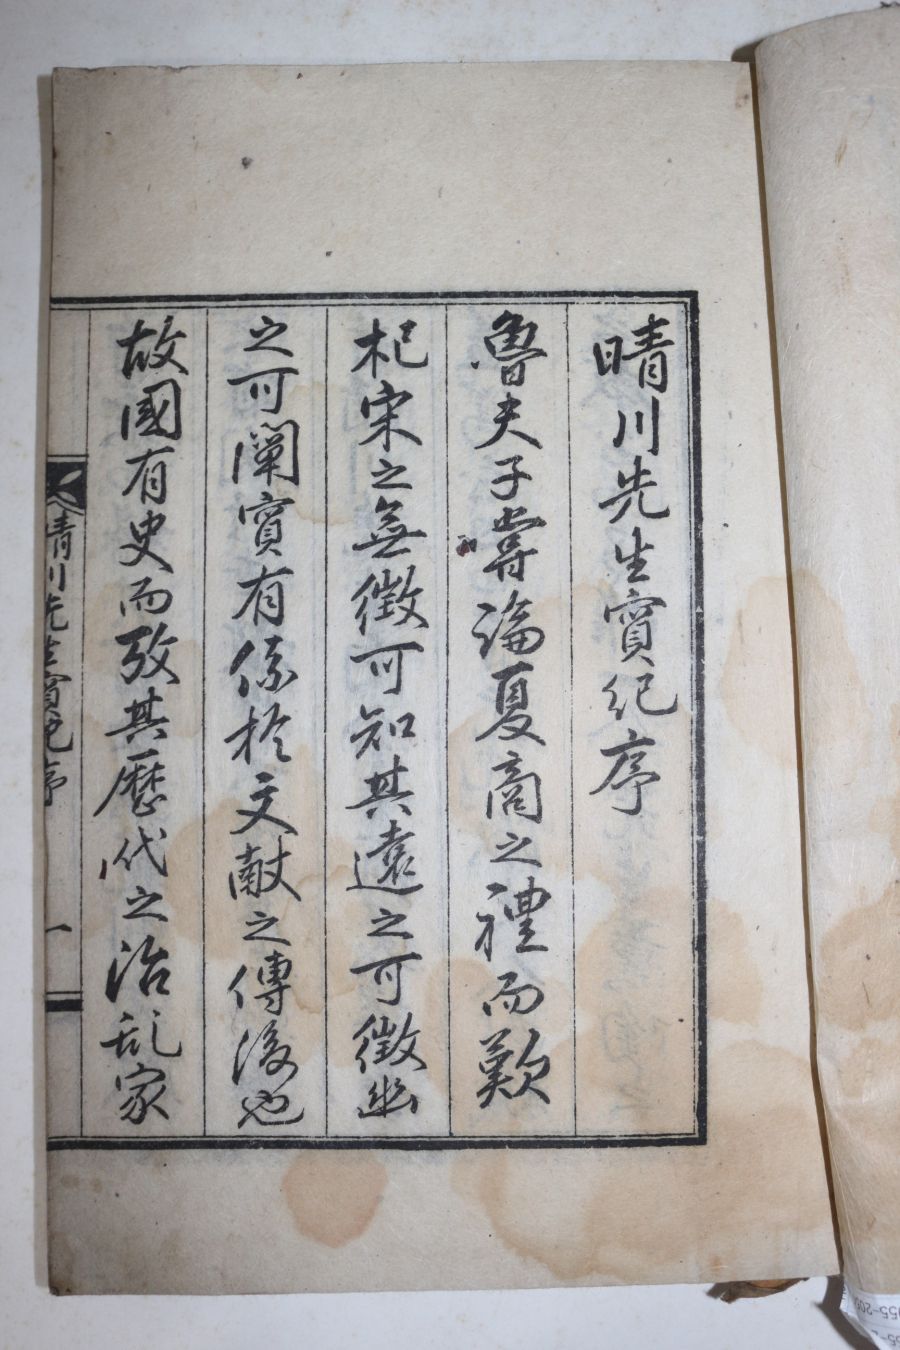 晴川先生實紀序
魯夫子嘗論夏商之禮而歎
杞宋之無徵可知其遠之可徵幽
之可闡實有係於文献之傳後也
故國有史而攷其歷代之治乱家
晴川先生實紀序
一